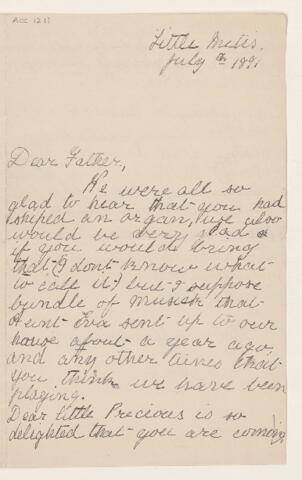 Acc 1211
Little Metis.
July 1891
Dear Father,
We were all so
glad to hear that you had
shiped an organ, we also
would be very glad
if you would bring
that (I dont know what
to call it) but I suppose
bundle of musick that
Aunt Eva sent up to our
house about a year ago
and any other tunes that
you think we have been
playing.
Dear little Precious is so
delighted that you are coming